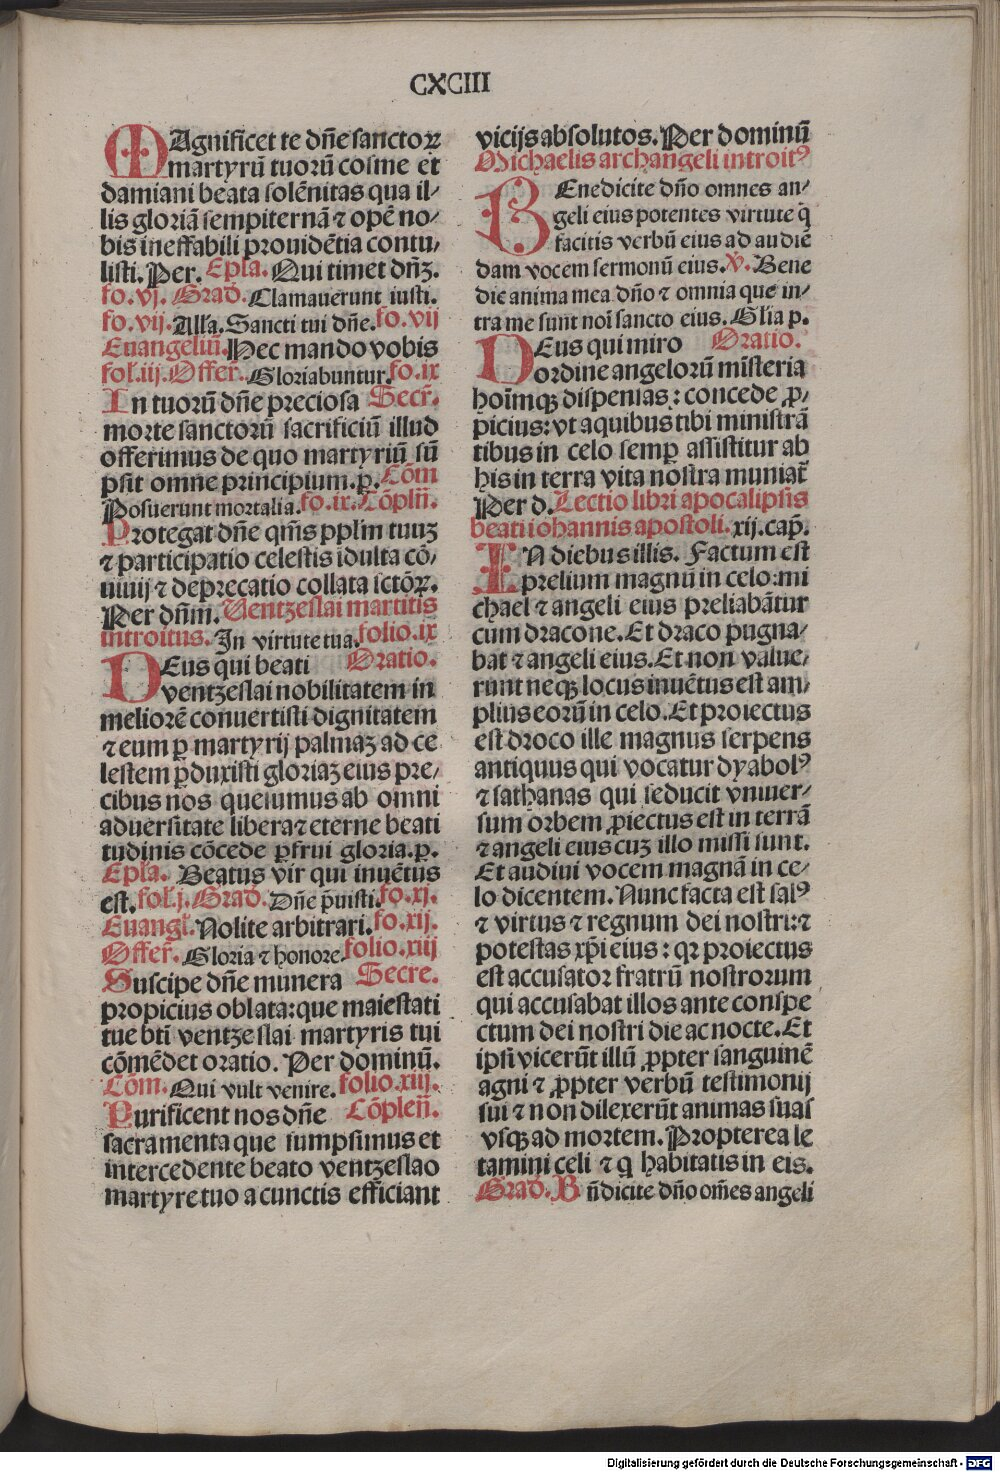 CXCIII
MAgnificet te dn̄e sanctoꝝ
martyrū tuorū cosme et
damiani beata solēnitas qua il⸗
lis gloriā sempiternā ⁊ opē no⸗
bis ineffabili prouidētia contu⸗
listi. Per. Epl̄a. Qui timet dn̄ꝫ.
fo. vj. Grad. Clamauerunt iusti.
fo. vij. Alla. Sancti tui dn̄e. fo. vij
Euangeliū. Nec mando vobis
fol. iij. Offer̄. Gloriabuntur. fo. ix
In tuorū dn̄e preciosa Secr̄.
morte sanctorū sacrificiū illud
offerimus de quo martyriū sū
p̄sit omne principium. p. Cōm
Posuerunt mortalia. fo. ix. Cōpln̄.
Protegat dn̄e qm̄s pplm̄ tuuꝫ
⁊ participatio celestis īdulta cō⸗
uiuij ⁊ deprecatio collata sctōꝝ.
Per dn̄m. Ventzeslai martitis
introitus. In virtute tua. folio. ix
DEus qui beati Oratio.
ventzeslai nobilitatem in
meliorē conuertisti dignitatem
⁊ eum ꝑ martyrij palmaꝫ ad ce
lestem ꝑduxisti gloriaꝫ eius pre⸗
cibus nos quesumus ab omni
aduersitate libera ⁊ eterne beati
tudinis cōcede ꝑfrui gloria. p.
Epl̄a. Beatus vir qui inuētus
est. fol. j. Grad. Dn̄e p̄uisti. fo. xj.
Euangl̄. Nolite arbitrari. fo. xij.
Offer̄. Gloria ⁊ honore. folio. xiij
Suscipe dn̄e munera Secre.
propicius oblata: que maiestati
tue bti̅ ventzeslai martyris tui
cōmēdet oratio. Per dominū.
Cōm. Qui vult venire. folio. xiij.
Purificent nos dn̄e Cōplen̄.
sacramenta que sumpsimus et
intercedente beato ventzeslao
martyre tuo a cunctis efficiant
vicijs absolutos. Per dominū
Michaelis archangeli introitꝰ
BEnedicite dn̄o omnes an⸗
geli eius potentes virtute q̄
facitis verbū eius ad audiē
dam vocem sermonū eius. V. Bene
dic anima mea dn̄o ⁊ omnia que in⸗
tra me sunt noī sancto eius. Glīa p.
DEus qui miro Oratio.
ordine angelorū mīsteria
hoīmqꝫ dispensas: concede ꝓ⸗
picius: vt a quibus tibi ministrā
tibus in celo semꝑ assistitur ab
his in terra vita nostra muniat̄
Per d. Lectio libri apocalipsn̄s
beati iohannis apostoli. xij. cap̄.
IN diebus illis. Factum est
prelium magnū in celo: mi
chael ⁊ angeli eius preliabātur
cum dracone. Et draco pugna⸗
bat ⁊ angeli eius. Et non value⸗
runt neqꝫ locus inuētus est am⸗
plius eorū in celo. Et proiectus
est droco ille magnus serpens
antiquus qui vocatur dyabolꝰ
⁊ sathanas qui seducit vniuer⸗
sum orbem ꝓiectus est in terrā
⁊ angeli eius cuꝫ illo missi sunt.
Et audiui vocem magnā in ce⸗
lo dicentem. Nunc facta est salꝰ
⁊ virtus ⁊ regnum dei nostri: ⁊
potestas xp̄i eius: qꝛ proiectus
est accusator fratrū nostrorum
qui accusabat illos ante conspe
ctum dei nostri die ac nocte. Et
ipsi vicerūt illū ꝓpter sanguinē
agni ⁊ ꝓpter verbū testimonij
sui ⁊ non dilexerūt animas suas
vsqꝫ ad mortem. Propterea le
tamini celi ⁊ q̄ habitatis in eis.
Grad. Bn̄dicite dn̄o om̄es angeli
Digitalisierung gefördert durch die Deutsche Forschungsgemeinschaft - DFG